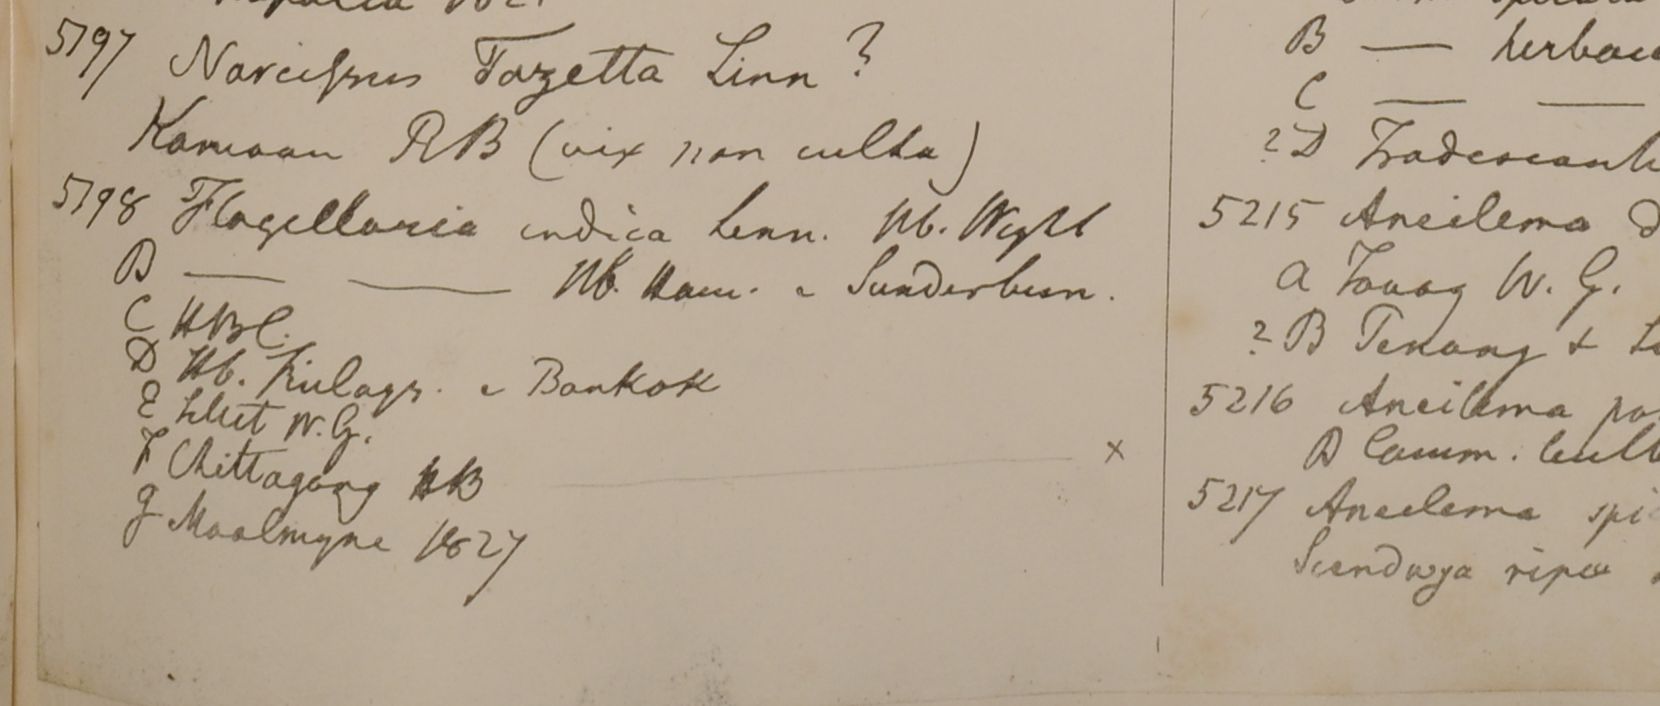 5797 Narcissus Tazetta Linn ?
Kamaon RB (vix non culta)
5798 Flagellaria indica Linn. Hb. Wight
B — — Hb. Ham. e Sunderbun.
C HBC.
D Hb. Finlays. e Bankok
E Silhet W.G.
F Chittagong HB
G Moalmyne 1827
×
B — herbace
C — —
? D Tradescanti
5215 Aneilema
a Tavoy W. G.
? B Penang &
5216 Aneilema
B Comm.
5217 Aneilema spi
Segndwya ripa